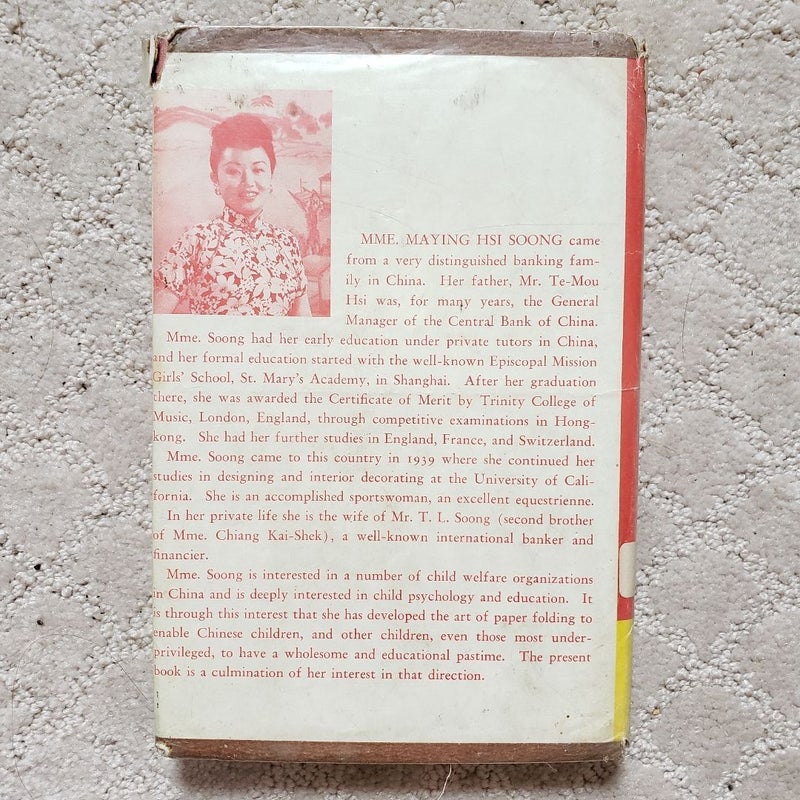 MME. MAYING HSI SOONG came
from a very distinguished banking fam-
ily in China. Her father, Mr. Te-Mou
Hsi was, for many years, the General
Manager of the Central Bank of China.
Mme. Soong had her early education under private tutors in China,
and her formal education started with the well-known Episcopal Mission
Girls' School, St. Mary's Academy, in Shanghai. After her graduation
there, she was awarded the Certificate of Merit by Trinity College of
Music, London, England, through competitive examinations in Hong-
kong. She had her further studies in England, France, and Switzerland.
Mme. Soong came to this country in 1939 where she continued her
studies in designing and interior decorating at the University of Cali-
fornia. She is an accomplished sportswoman, an excellent equestrienne.
In her private life she is the wife of Mr. T. L. Soong (second brother
of Mme. Chiang Kai-Shek), a well-known international banker and
financier.
Mme. Soong is interested in a number of child welfare organizations
in China and is deeply interested in child psychology and education. It
is through this interest that she has developed the art of paper folding to
enable Chinese children, and other children, even those most under-
privileged, to have a wholesome and educational pastime. The present
book is a culmination of her interest in that direction.